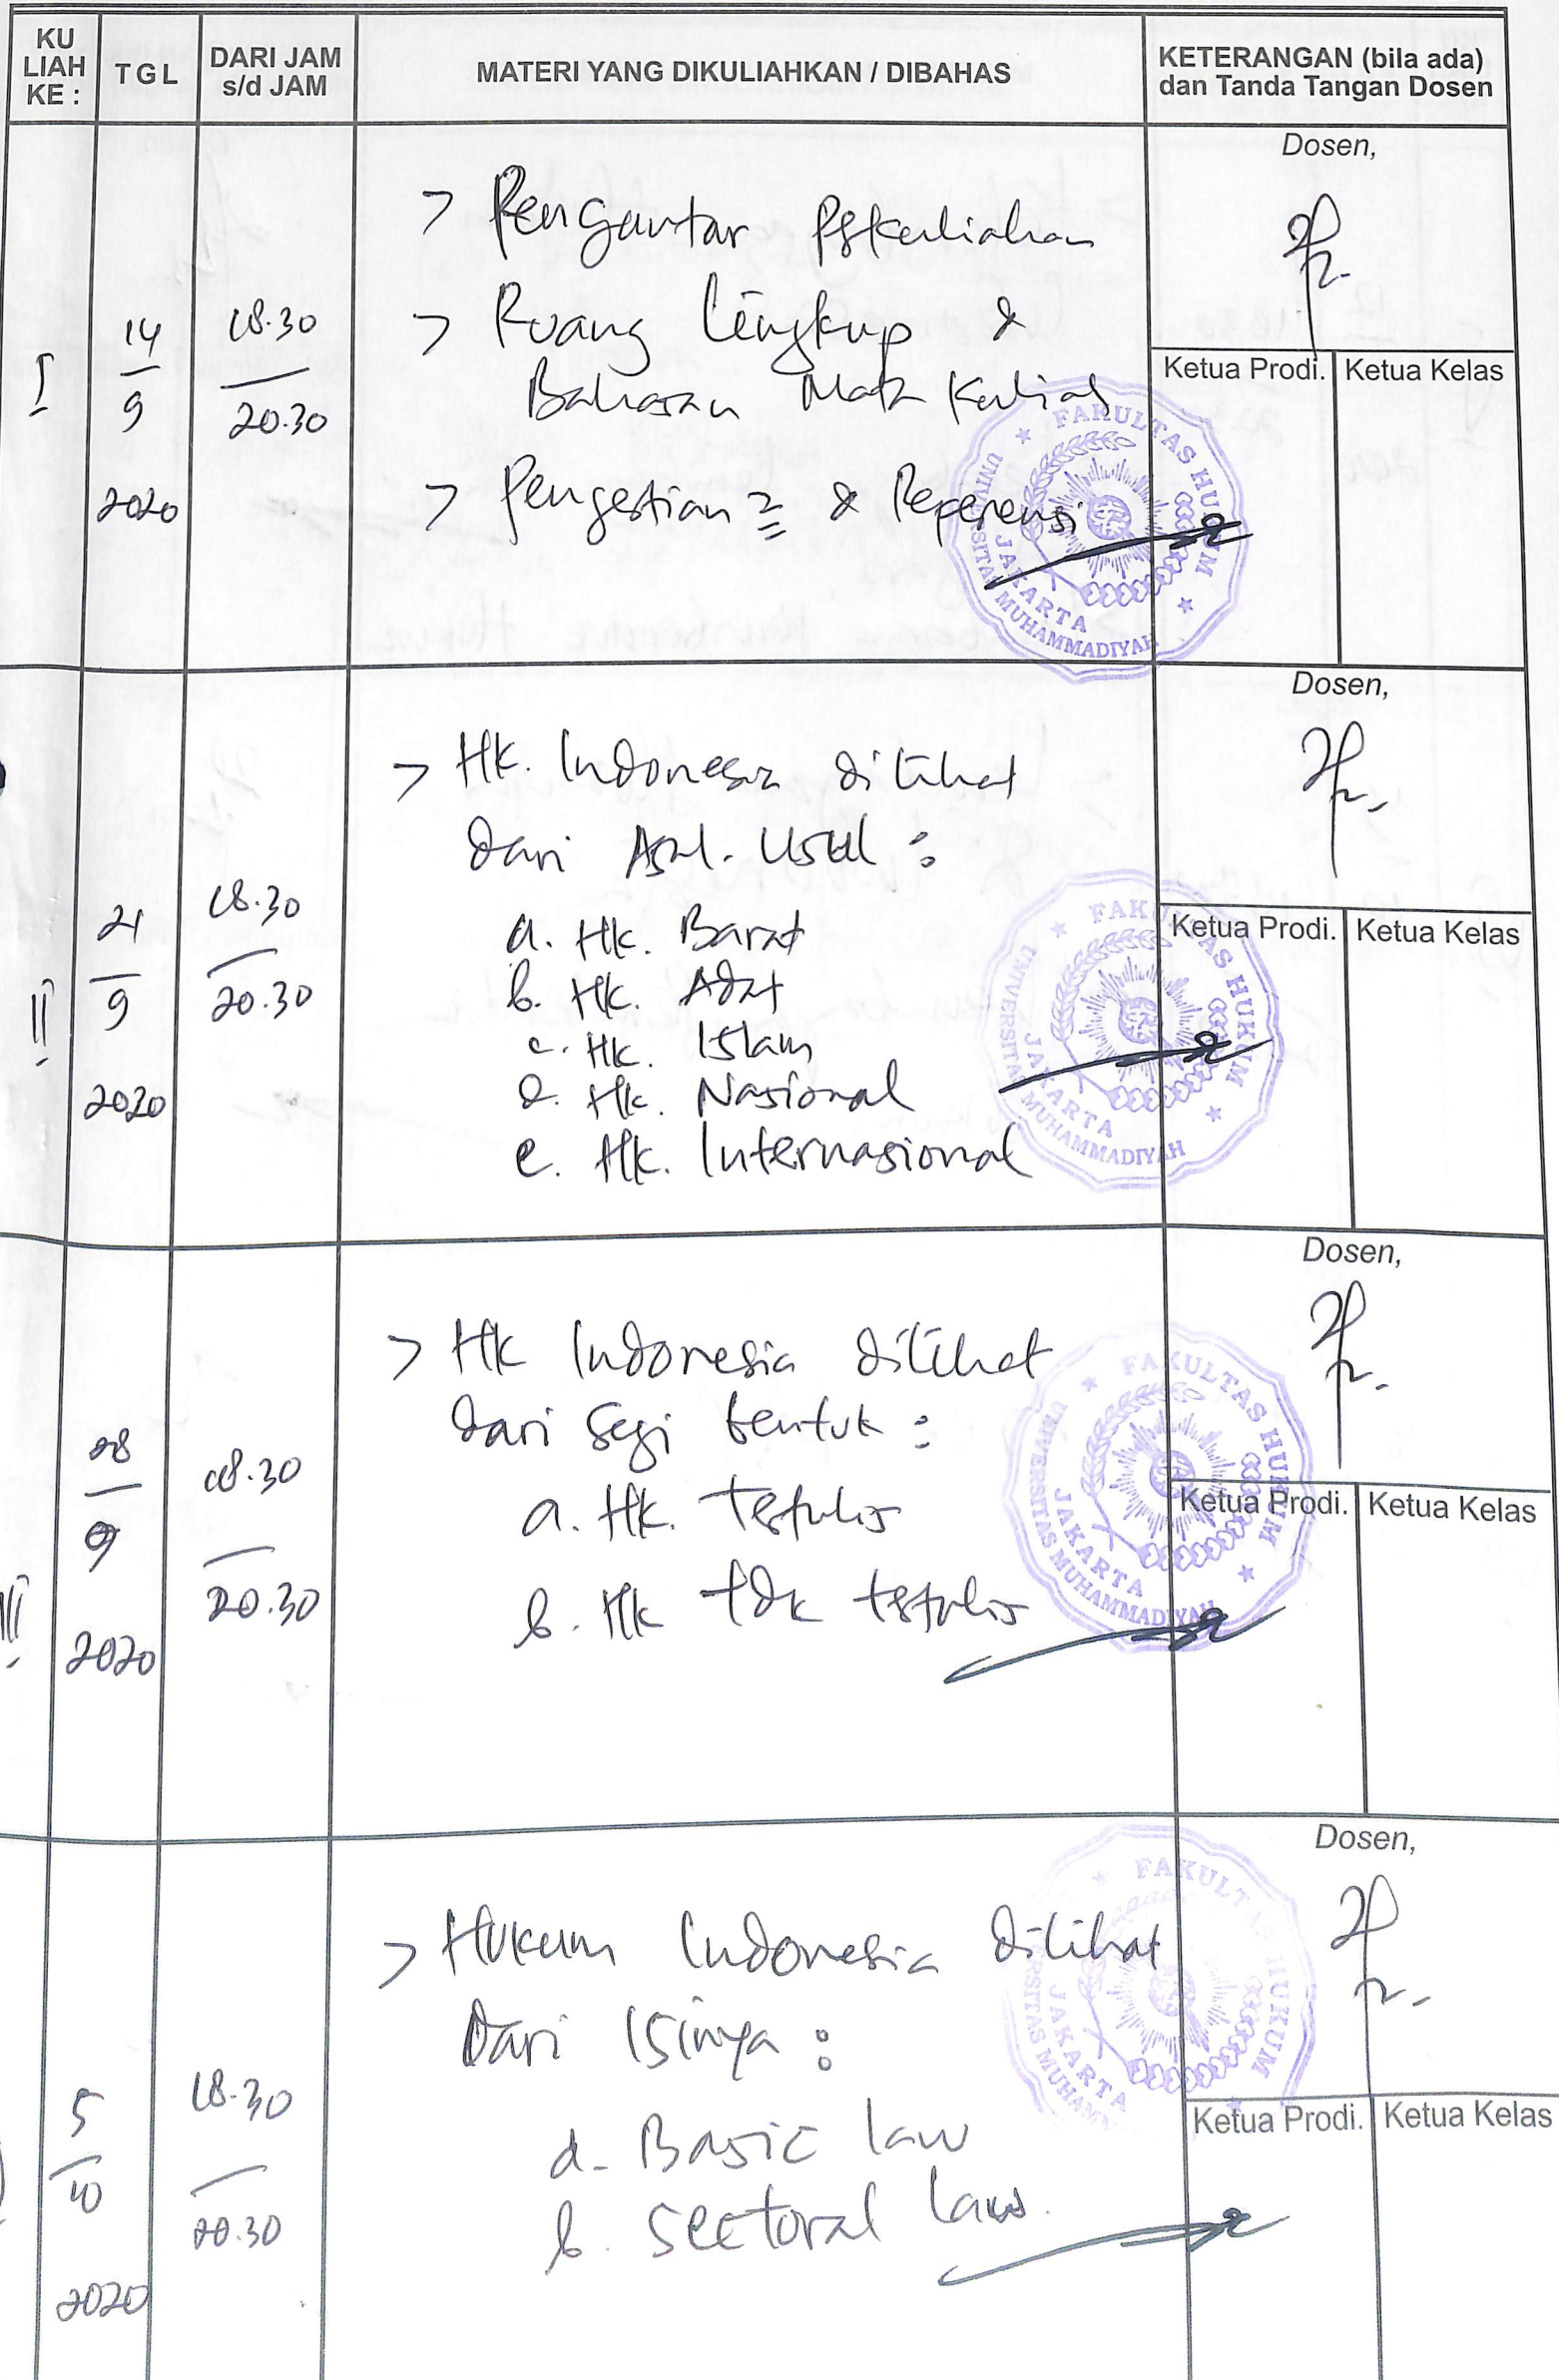 KU LIAH KE :
TGL
DARI JAM s/d JAM
MATERI YANG DIKULIAHKAN / DIBAHAS
KETERANGAN (bila ada) dan Tanda Tangan Dosen
I
14
9
2020
18.30
20.30
> Pengantar Perkuliahan
> Ruang Lingkup &
Bahasan Mata Kuliah
> Pengertian2 & Referensi
Dosen,
Ketua Prodi. Ketua Kelas
FAKULTAS HUKUM
UNIVERSITAS MUHAMMADIYAH
JAKARTA
II
21
9
2020
18.30
20.30
> Hk. Indonesia dilihat
dari Asal-Usul :
a. Hk. Barat
b. Hk. Adat
c. Hk. Islam
d. Hk. Nasional
e. Hk. Internasional
Dosen,
Ketua Prodi. Ketua Kelas
FAKULTAS HUKUM
UNIVERSITAS MUHAMMADIYAH
JAKARTA
III
28
9
2020
18.30
20.30
> Hk Indonesia dilihat
dari Segi bentuk :
a. Hk. Tertulis
b. Hk tdk tertulis
Dosen,
Ketua Prodi. Ketua Kelas
FAKULTAS HUKUM
UNIVERSITAS MUHAMMADIYAH
JAKARTA
5
10
2020
18.30
20.30
> Hukum Indonesia dilihat
Dari Isinya :
a. Basic law
b. Sectoral law.
Dosen,
Ketua Prodi. Ketua Kelas
FAKULTAS HUKUM
JAKARTA